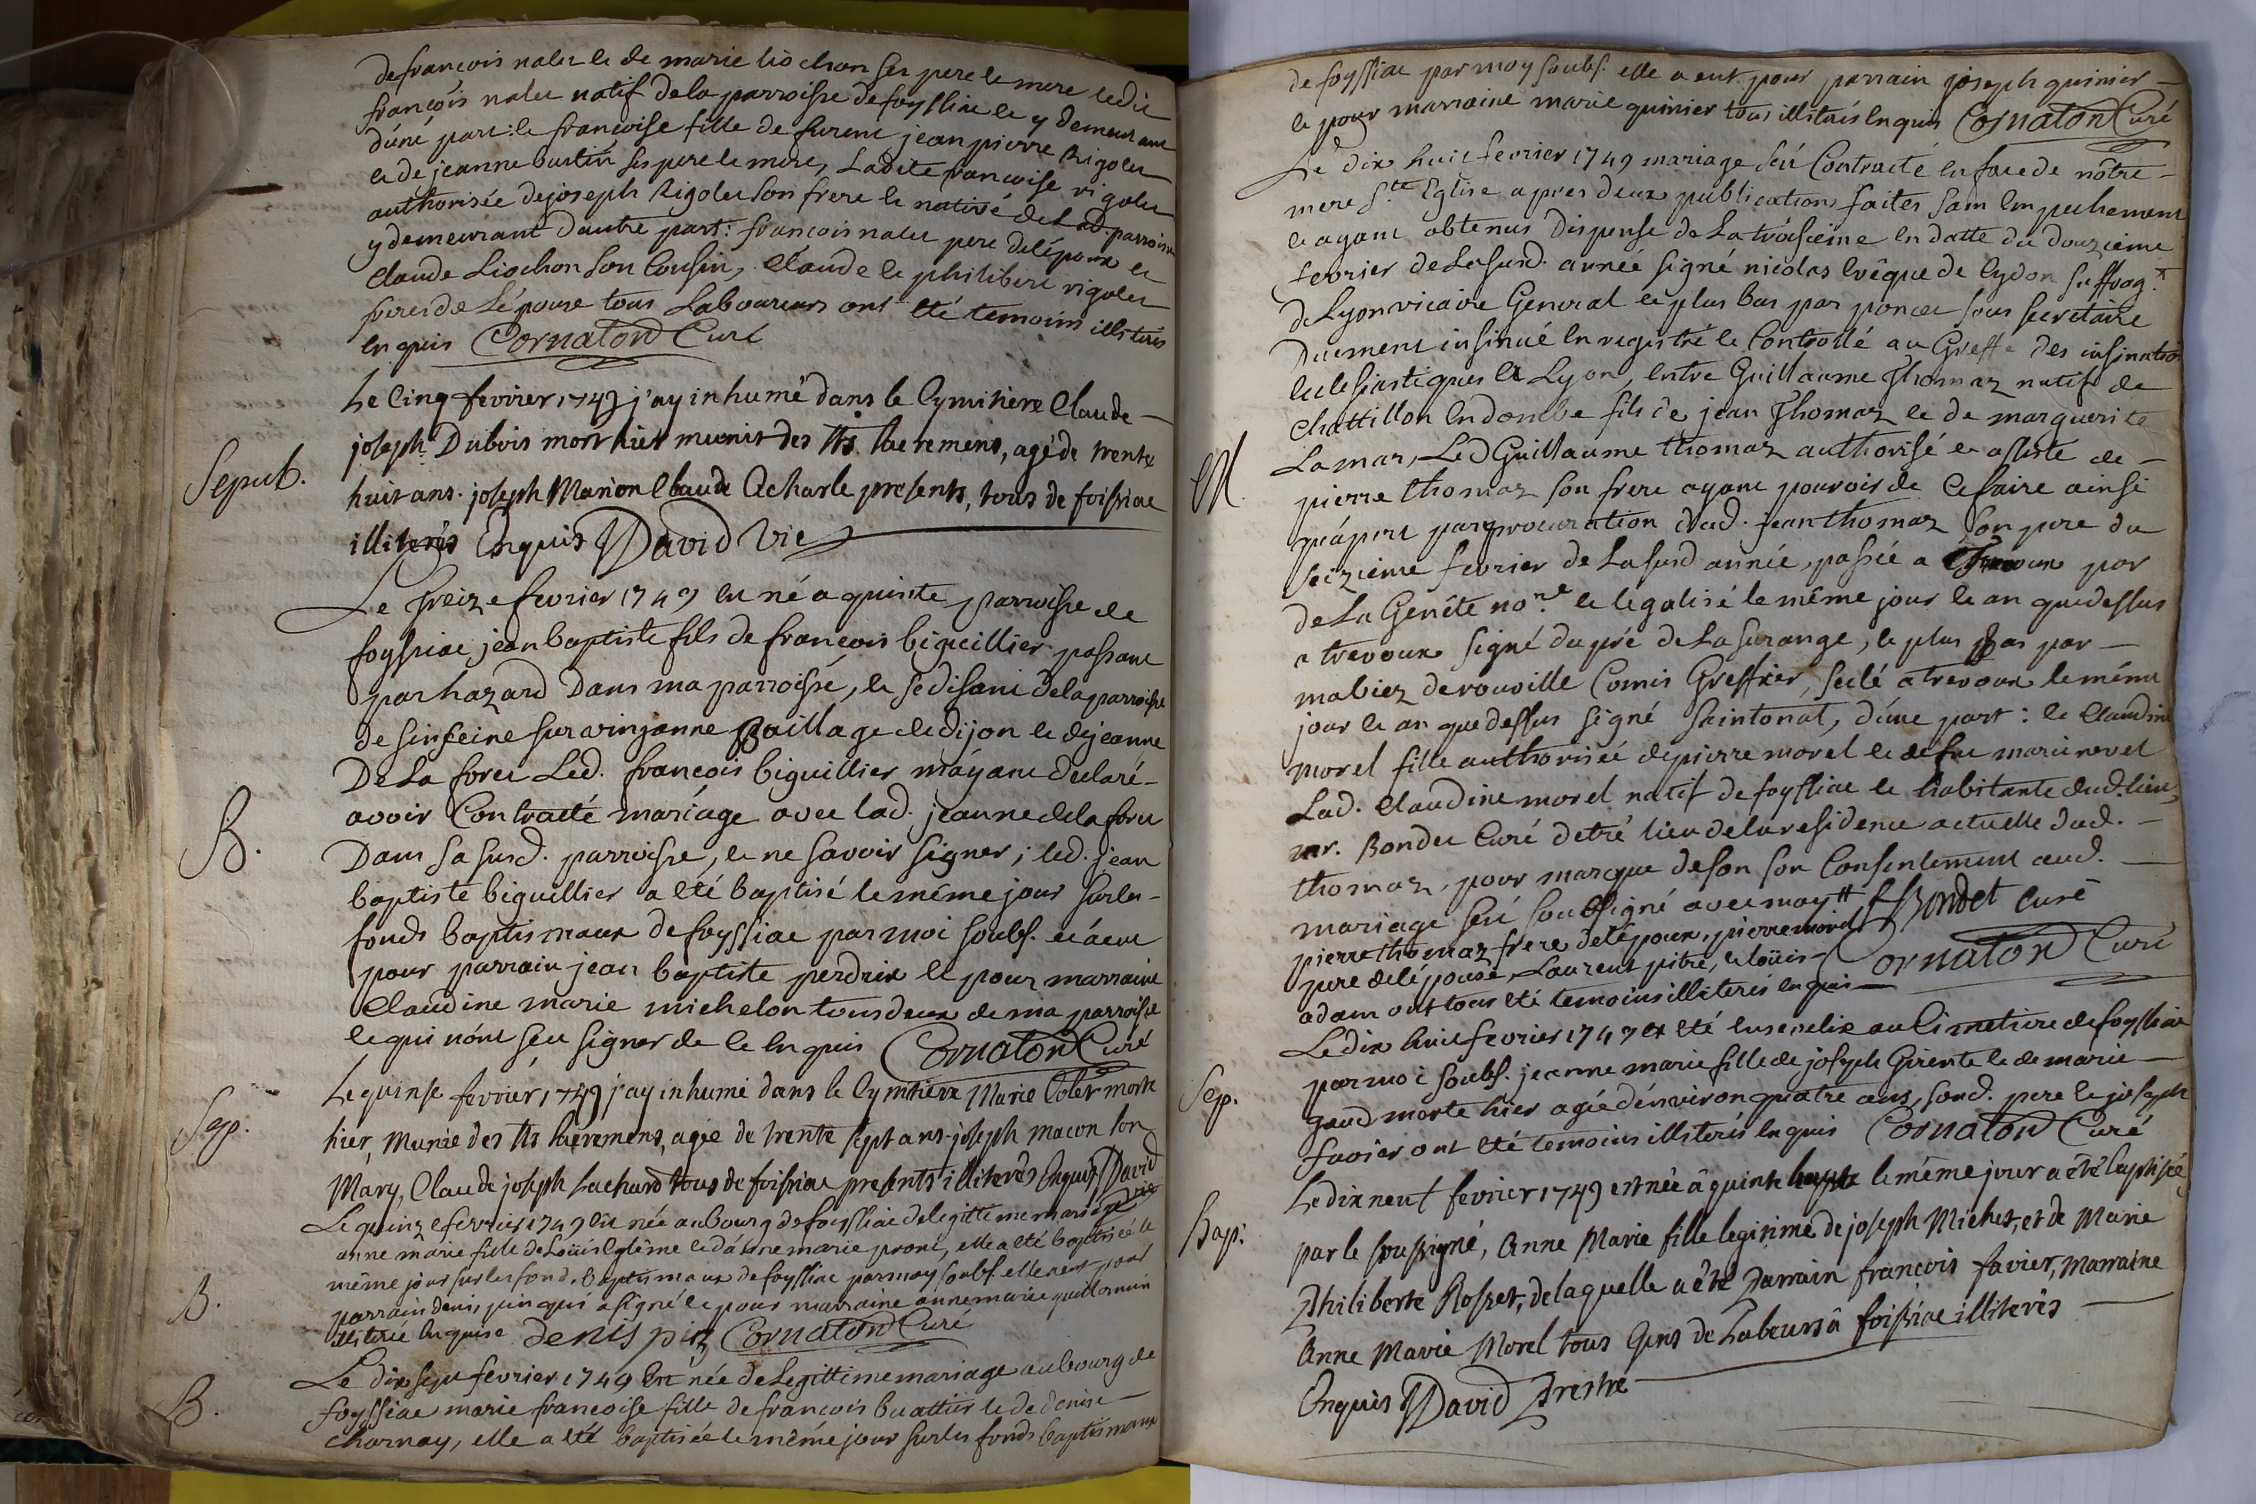 de françois nalet et de marie liochon ses pere et mere ledit
françois nalet natif de la parroisse de foyssiac et y demeurant
d'une part: et françoise fille de furent jean pierre Rigolet
et de jeanne ses pere et mere, Ladite françoise rigolet
authorisée de joseph Rigolet son frere et native de Lad. parroisse
y demeurant d'autre part: françois nalet pere de l'époux et
Claude Liochon son Cousin, Claude et philibert rigolet
freres de L'épouse tous Laboureurs ont été temoins illiterés
enquis Cornaton Curé
Le Cinq fevrier 1749 j'ay inhumé dans le Cymitiere Claude
Sepult.
joseph Dubois mort hier munit des Sts. Sacremens, agé de trente
huit ans. joseph Marion Claude Acharle presents, tous de foissiac
illiterés Enquis David Vic
Le Treize fevrier 1749 est né a quinte parroisse de
foyssiac jean baptiste fils de françois biguillier passant
par hazard Dans ma parroisse, et se disant de la parroisse
de sur vinganne Baillage de dijon et de jeanne
De La foret Led. françois biguillier m'ayant declaré
avoir Contracté mariage avec lad. jeanne de la foret
B.
Dans sa susd. parroisse, et ne savoir signer; led. jean
baptiste biguillier a été baptisé le même jour sur les
fonds baptismaux de foyssiac par moi soubs. et a eut
pour parrain jean baptiste perdrix et pour marraine
Claudine marie michelon tous deux de ma parroisse
et qui n'ont seu signer de ce enquis Cornaton Curé
Le quinse fevrier 1749 j'ay inhumé dans le Cymitiere Marie Colet morte
Sep.
hier, Munie des Sts Sacremens, agée de trente sept ans. joseph macon son
Mary, Claude joseph Lachard tous de foissiac presents illiterés Enquis David
vic
Le quinze fevrier 1749 est née au bourg de foyssiac de legittime mariage
anne marie fille de Loüis et d'anne marie pront, elle a été baptisée le
même jour sur les fonds baptismaux de foyssiac par moy soubs. elle a eut pour
B.
parrain denis pin qui a signé et pour marraine anne marie guillermin
illiterée enquise denis pin Cornaton Curé
Le dix sept fevrier 1749 est née de Legittime mariage au bourg de
B.
foyssiac marie françoise fille de françois buattier et de denise
charnay, elle a été baptisée le même jour sur les fonds baptismaux
de foyssiac par moy soubs. elle a eut pour parrain joseph quinier
et pour marraine marie quinier tous illiterés enquis Cornaton Curé
Le dix huit fevrier 1749 mariage fut Contracté en face de nôtre
mere Ste. Eglise apres deux publication faites sans empechement
et ayant obtenus Dispense de La troisieme en datte du douzieme
fevrier de La susd. année signé nicolas evêque de Eydon suffrag.t
de Lyon vicaire General et plus bas par poncet sous secretaire
Duement insinué enregistré et Controllé au Greffe des insinuation
ecclesiastiques de Lyon, entre Guillaume Thomaz natif de
Chattillon en dombe fils de jean Thomaz et de marguerite
M.
Lamar, Led Guillaume thomaz authorisé et assisté de
pierre thomaz son frere ayant pouvoir de Ce faire ainsi
qu'apert par procuration dud. jean thomaz son pere du
seizieme fevrier de La susd année, passée a Trevoux par
de La Genête no.re et legalisé le même jour et an que dessus
a trevoux signé dupré de La surange, et plus bas par
mabiez de rouville Comis Greffier, seelé a trevoux le même
jour et an que dessus signé Saintonat, d'une part: et Claudine
morel fille authorisée de pierre morel et de fut marie revel
Lad. Claudine morel natif de foyssiac et habitante dud. lieu,
mr. Bondet Curé de tré lieu de la residence actuelle dud.
thomaz, pour marque de son son Consentement aud.
mariage s'est soubsigné avec moy # Bondet curé
pierre thomaz frere de lépoux, pierre morel
pere de lépouse, Laurent pitre, et loüis Cornaton Curé
adam ont tous été temoins illiterés enquis
Le dix huit fevrier 1749 a été ensevelie au Cimetiere de foyssiac
Sep.
par moi soubs. jeanne marie fille de joseph Girente et de marie
gaud morte hier agée d'environ quatre ans, sond. pere et joseph
favier ont été temoins illiterés enquis Cornaton Curé
Le dix neuf fevrier 1749 est née â quinte le même jour a été baptisée
Bap:
par le soussigné, Anne Marie fille legitime de joseph Michet, et de Marie
Philiberte Rosset, de laquelle a été Parrain françois favier, Marraine
Anne Marie Morel tous Gens de Labeurs à foissiac illiterés
Enquis David Prestre